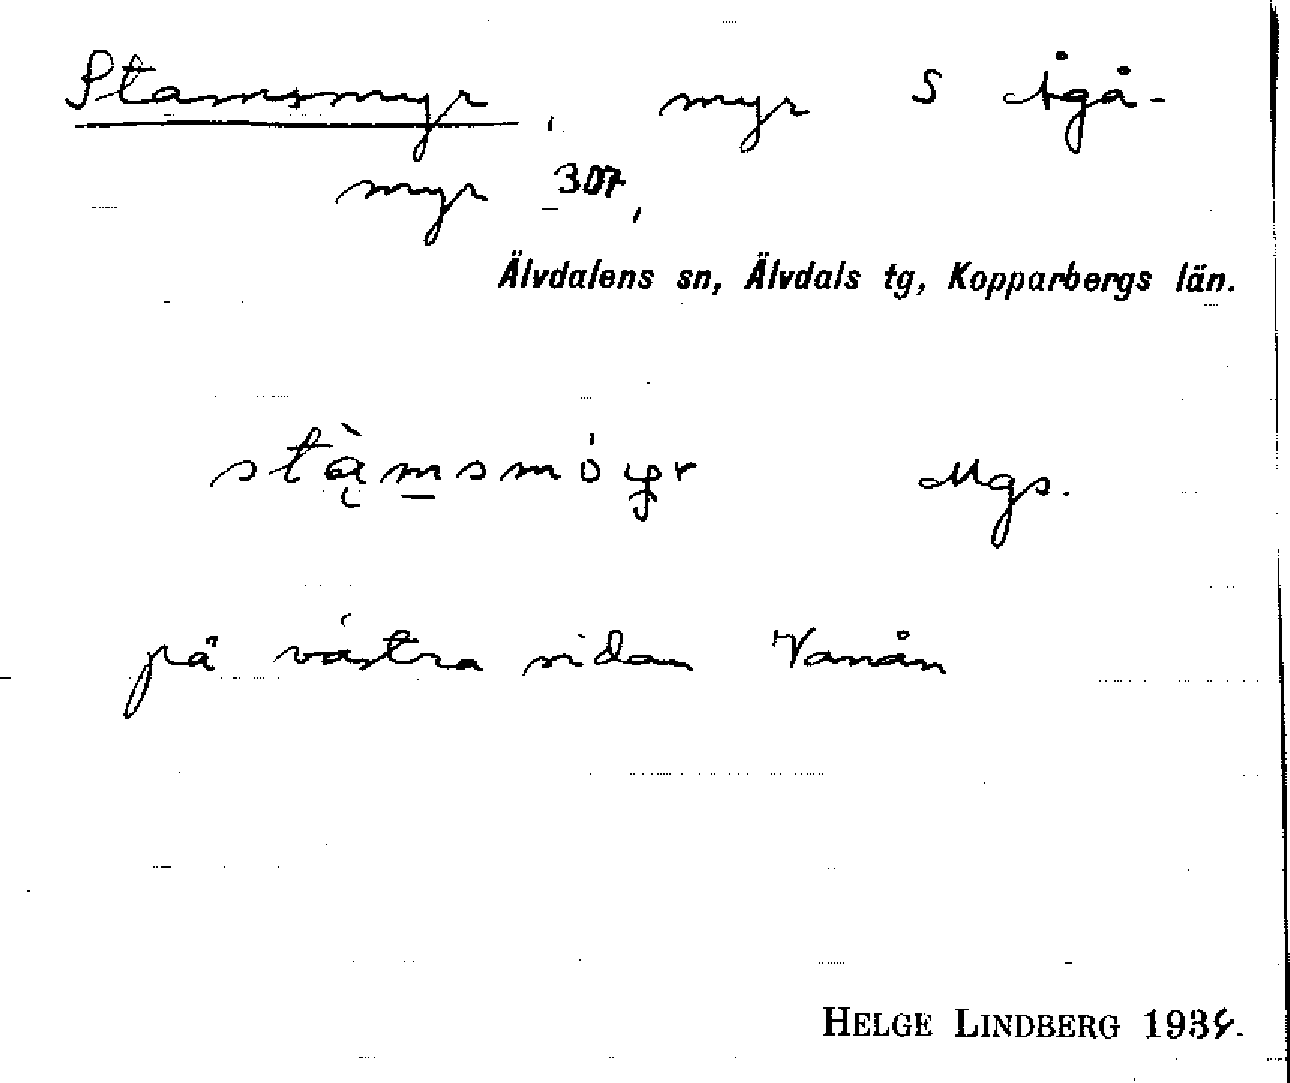 Stamsmyr, myr S Ågå-
myr 307,
Älvdalens sn, Älvdals tg, Kopparbergs län.
stàmsmöyr Mgs.
på västra sidan Vanån
HELGE LINDBERG 1934.